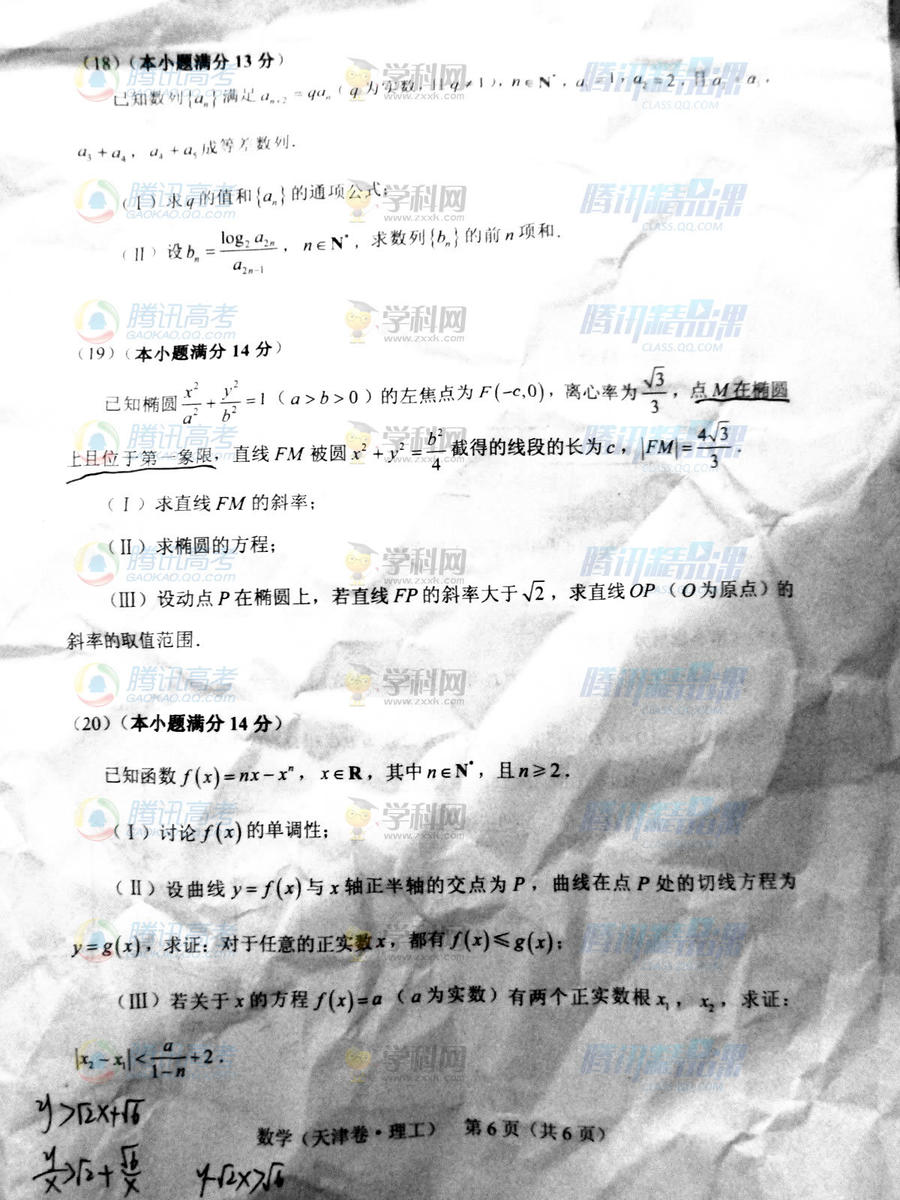 (18)(本小题满分 13 分)
已知数列{aₙ}满足 aₙ₊₂ = qaₙ(q 为实数,且 q ≠ 1),n ∈ N*,a₁ = 1,a₂ = 2,且 a₂ + a₃,
a₃ + a₄,a₄ + a₅ 成等差数列.
(Ⅰ)求 q 的值和{aₙ}的通项公式;
(Ⅱ)设 bₙ = log₂ a₂ₙ / a₂ₙ₋₁,n ∈ N*,求数列{bₙ}的前 n 项和.
(19)(本小题满分 14 分)
已知椭圆 x²/a² + y²/b² = 1(a > b > 0)的左焦点为 F(-c,0),离心率为 √3/3,点 M 在椭圆
上且位于第一象限,直线 FM 被圆 x² + y² = b²/4 截得的线段的长为 c,|FM| = 4√3/3.
(Ⅰ)求直线 FM 的斜率;
(Ⅱ)求椭圆的方程;
(Ⅲ)设动点 P 在椭圆上,若直线 FP 的斜率大于 √2,求直线 OP(O 为原点)的
斜率的取值范围.
(20)(本小题满分 14 分)
已知函数 f(x) = nx - xⁿ,x ∈ R,其中 n ∈ N*,且 n ≥ 2.
(Ⅰ)讨论 f(x) 的单调性;
(Ⅱ)设曲线 y = f(x) 与 x 轴正半轴的交点为 P,曲线在点 P 处的切线方程为
y = g(x),求证:对于任意的正实数 x,都有 f(x) ≤ g(x);
(Ⅲ)若关于 x 的方程 f(x) = a(a 为实数)有两个正实数根 x₁,x₂,求证:
|x₂ - x₁| < a/(1-n) + 2.
y>√2x+√6
y/x>√2+√6/x y-√2x>√6
数学(天津卷·理工) 第 6 页(共 6 页)
腾讯高考
GAOKAO.QQ.COM
学科网
www.zxxk.com
腾讯精品课
CLASS.QQ.COM